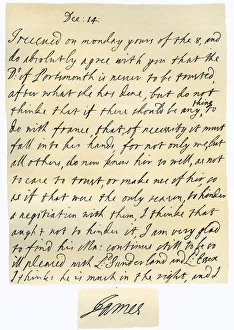 Dec: 14.
I receved on monday yours of the 8, and
do absolutly agree with you that the
Ds. of Portsmouth is never to be trusted
after what she has done, but do not
thinke that if there should be any thing to
do with france, that of necesity it must
fall into his hands, for not only we, but
all others, do now know her so well, as not
to care to trust, or make use of her, so
as if that were the only reason, to hinder
a negotiation with them, I thinke that
aught not to hinder it, I am very glad
to find his Ma: continues still to be so
ill pleased with Ld. Sunderland and Ld. Essex
I thinke he is much in the right, and I
James